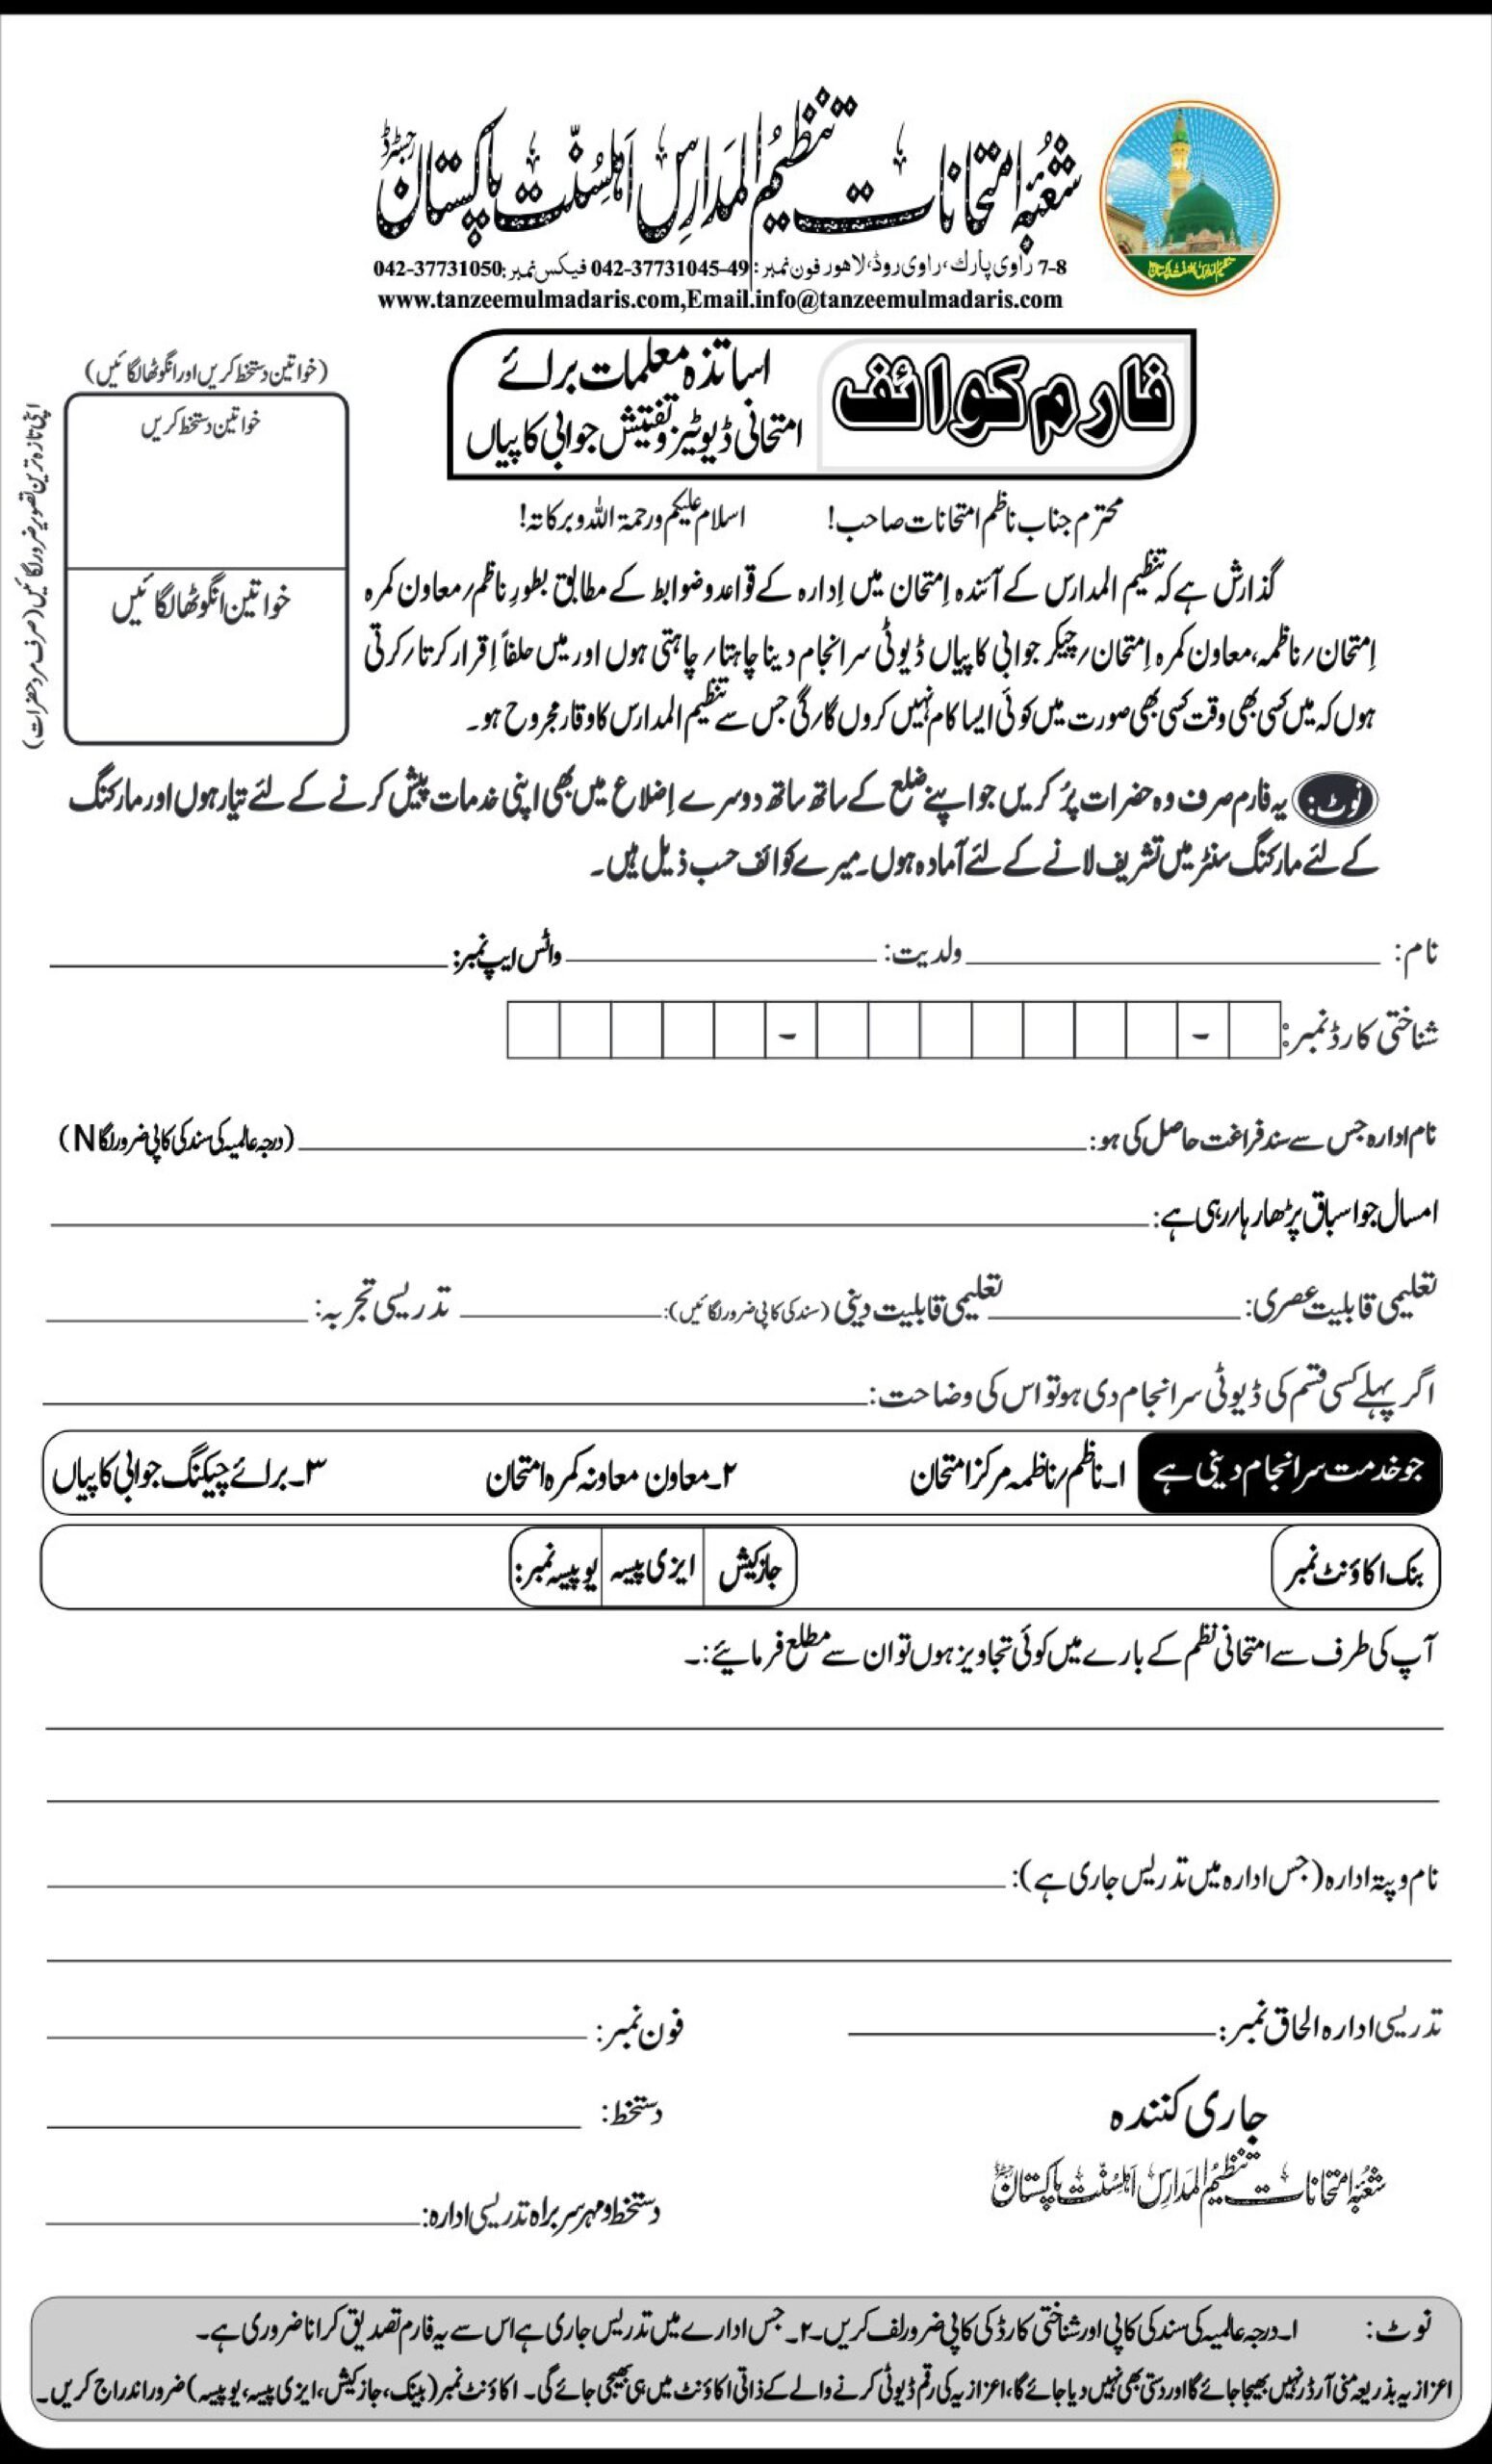 شعبۂ امتحانات تنظیم المدارس اہلسنت پاکستان رجسٹرڈ
7-8 راوی پارك، راوی روڈ، لاهور فون نمبر: 042-37731045-49 فیکس نمبر: 042-37731050
www.tanzeemulmadaris.com,Email.info@tanzeemulmadaris.com
تنظیم المدارس اہلسنت پاکستان
فارم کوائف
اساتذہ معلمات برائے
امتحانی ڈیوٹیز و تفتیش جوابی کاپیاں
(خواتین دستخط کریں اور انگوٹھا لگائیں)
خواتین دستخط کریں
خواتین انگوٹھا لگائیں
اپنی تازہ ترین تصویر ضرور لگائیں (صرف مرد حضرات)
محترم جناب ناظم امتحانات صاحب! اسلام علیکم ورحمۃ اللہ وبرکاتہ!
گذارش ہے کہ تنظیم المدارس کے آئندہ اِمتحان میں اِدارہ کے قواعد و ضوابط کے مطابق بطورِ ناظم/معاون کمرہ
اِمتحان/ناظمہ، معاون کمرہ اِمتحان/چیکر جوابی کاپیاں ڈیوٹی سرانجام دینا چاہتا/چاہتی ہوں اور میں حلفاً اِقرار کرتا/کرتی
ہوں کہ میں کسی بھی وقت کسی بھی صورت میں کوئی ایسا کام نہیں کروں گا/گی جس سے تنظیم المدارس کا وقار مجروح ہو۔
نوٹ: یہ فارم صرف وہ حضرات پُر کریں جو اپنے ضلع کے ساتھ ساتھ دوسرے اِضلاع میں بھی اپنی خدمات پیش کرنے کے لئے تیار ہوں اور مارکنگ
کے لئے مارکنگ سنٹر میں تشریف لانے کے لئے آمادہ ہوں۔ میرے کوائف حسب ذیل ہیں۔
نام: ولدیت: واٹس ایپ نمبر:
شناختی کارڈ نمبر: - -
نام ادارہ جس سے سند فراغت حاصل کی ہو: (درجہ عالمیہ کی سند کی کاپی ضرور لگاN)
امسال جو اسباق پڑھا رہا/رہی ہے:
تعلیمی قابلیت عصری: تعلیمی قابلیت دینی (سند کی کاپی ضرور لگائیں): تدریسی تجربہ:
اگر پہلے کسی قسم کی ڈیوٹی سرانجام دی ہو تو اس کی وضاحت:
جو خدمت سرانجام دینی ہے ۱۔ناظم/ناظمہ مرکز امتحان ۲۔معاون معاونہ کمرہ امتحان ۳۔برائے چیکنگ جوابی کاپیاں
بنک اکاؤنٹ نمبر جازکیش ایزی پیسہ یو پیسہ نمبر:
آپ کی طرف سے امتحانی نظم کے بارے میں کوئی تجاویز ہوں تو ان سے مطلع فرمایئے:۔
نام و پتہ ادارہ (جس ادارہ میں تدریس جاری ہے):
تدریسی ادارہ الحاق نمبر: فون نمبر:
جاری کنندہ دستخط:
شعبۂ امتحانات تنظیم المدارس اہلسنت پاکستان رجسٹرڈ
دستخط و مہر سربراہ تدریسی ادارہ:
نوٹ: ۱۔درجہ عالمیہ کی سند کی کاپی اور شناختی کارڈ کی کاپی ضرور لف کریں۔۲۔ جس ادارے میں تدریس جاری ہے اس سے یہ فارم تصدیق کرانا ضروری ہے۔
اعزازیہ بذریعہ منی آرڈر نہیں بھیجا جائے گا اور دستی بھی نہیں دیا جائے گا، اعزازیہ کی رقم ڈیوٹی کرنے والے کے ذاتی اکاؤنٹ میں ہی بھیجی جائے گی۔ اکاؤنٹ نمبر (بینک، جازکیش، ایزی پیسہ، یو پیسہ) ضرور اندراج کریں۔